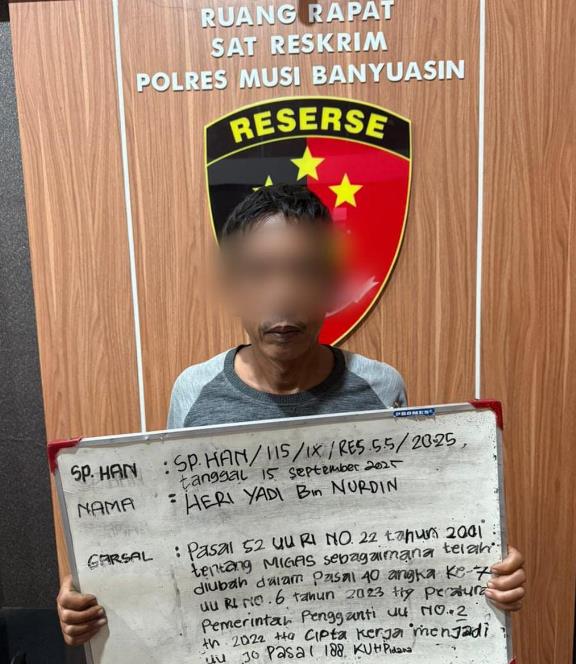 RUANG RAPAT
SAT RESKRIM
POLRES MUSI BANYUASIN
RESERSE
PROMES
SP. HAN : SP. HAN / 115 / IX / RES 5.5 / 2025,
tanggal 15 september 2025
NAMA = HERI YADI Bin NURDIN
GARSAL : Pasal 52 UU RI NO. 22 tahun 2001
tentang MIGAS sebagaimana telah
diubah dalam Pasal 40 angka Ke-7
UU RI NO. 6 tahun 2023 ttg Peratura
Pemerintah Pengganti UU NO. 2
th 2022 ttg Cipta Kerja menjadi
UU Jo Pasal 188 KUHPidana